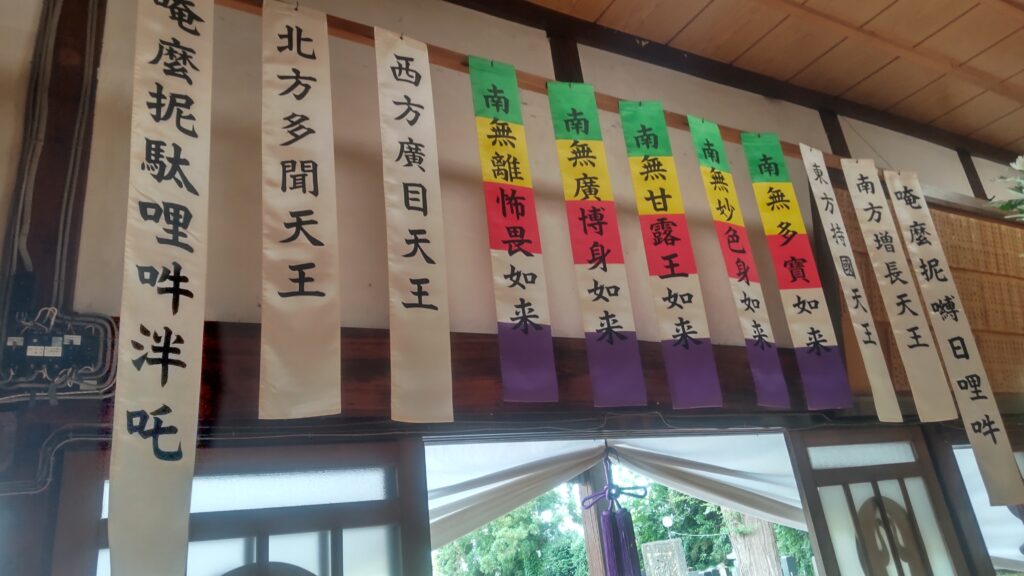 唵麼抳嚩日哩吽
南方増長天王
東方持國天王
南無多寶如来
南無妙色身如来
南無甘露王如来
南無廣博身如来
南無離怖畏如来
西方廣目天王
北方多聞天王
唵麼抳駄哩吽泮吒